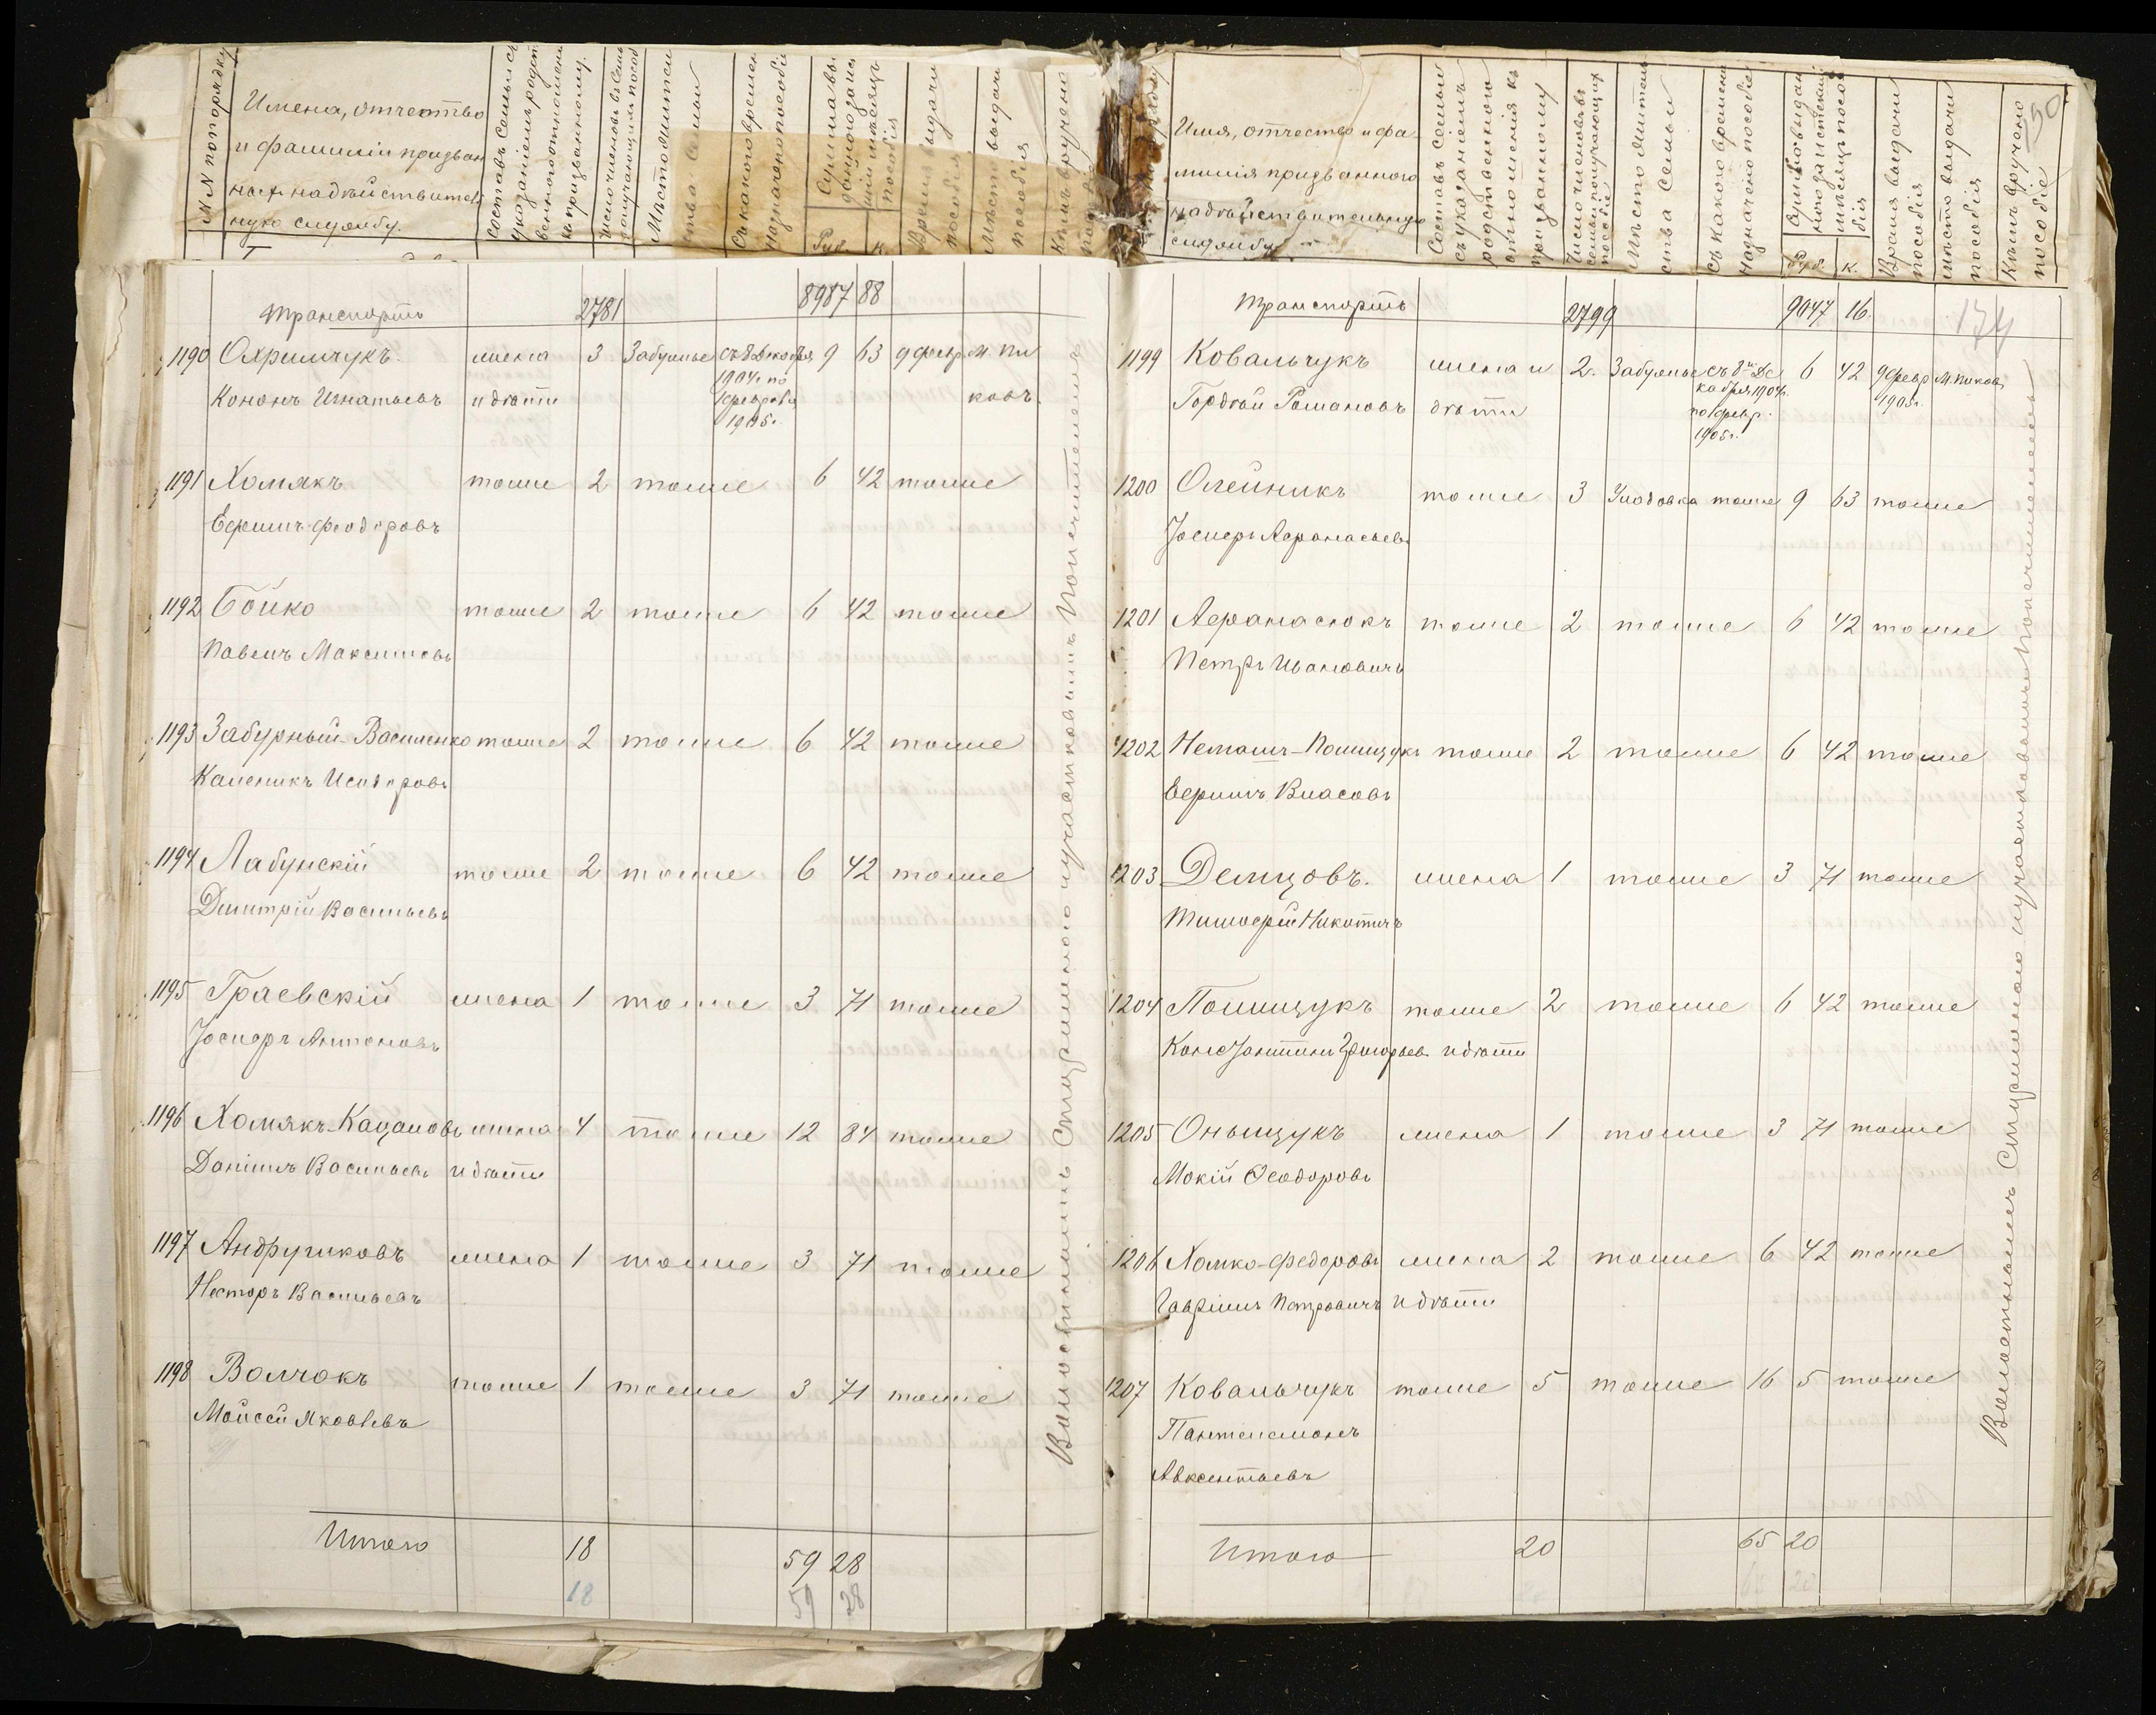 №№ по порядку
Имена, отчество
и фамиліи призван
ныхъ на дѣйствитель
ную службу.
Составъ семьи съ
указаніемъ родст
веннаго отношенія
къ призванному.
Число членовъ въ семьѣ
получающихъ пособ
Мѣсто житель
ства семьи
Съ какого времен
назначено пособіе
Сумма вы
даннаго за
мѣсяцъ
пособія
Руб. к.
Время выдачи
пособія
Мѣсто выдачи
пособія
Кѣмъ вручено
транспортъ 2781 8987 88
1190 Охримчукъ жена 3 Забужье съ 8 Декабря 9 63 9 февр. м. Пи
Кононъ Игнатьевъ и дѣти 1904 г. по февраль 1905 г. ковъ
1191 Хомякъ тоже 2 тоже 6 42 тоже
Ефимъ Феодоровъ
1192 Бойко тоже 2 тоже 6 42 тоже
Павелъ Максимовъ
1193 Забурный-Василенко тоже 2 тоже 6 42 тоже
Каленикъ Исидоровъ
1194 Лабунскій тоже 2 тоже 6 42 тоже
Димитрій Васильевъ
1195 Граевскій жена 1 тоже 3 71 тоже
Іосифъ Антоновъ
1196 Хомякъ-Кацановъ жена 4 тоже 12 84 тоже
Даніилъ Васильевъ и дѣти
1197 Андрущковъ жена 1 тоже 3 71 тоже
Несторъ Васильевъ
1198 Волчокъ тоже 1 тоже 3 71 тоже
Мойсей Яковлевъ
Итого 18 59 28
18 59 28
Волостнымъ Старшиною и участковымъ Попечителемъ
Имя, отчество и фа
милія призваннаго
на дѣйствительную
службу
Составъ семьи
съ указаніемъ
родственнаго
отношенія къ
призванному
Число членовъ
семьи получающихъ
пособіе
Мѣсто житель
ства семьи
Съ какого времени
назначено пособіе
Сумма выдан
наго за
мѣсяцъ посо
бія
Руб. к.
Время выдачи
пособія
Мѣсто выдачи
пособія
Кѣмъ вручено
пособіе
50
174
транспортъ 2799 9047 16
1199 Ковальчукъ жена и 2 Забужье съ 8го Де 6 42 9 февр м. Пиковъ
Гордѣй Романовъ дѣти кабря 1904 г. по февр. 1905 г. 1905 г.
1200 Олейникъ тоже 3 Уладовка тоже 9 63 тоже
Іосифъ Афанасьевъ
1201 Афанасюкъ тоже 2 тоже 6 42 тоже
Петръ Ивановичъ
1202 Немошъ-Полищукъ тоже 2 тоже 6 42 тоже
Ефимъ Власовъ
1203 Демцовъ. жена 1 тоже 3 71 тоже
Тимофей Никитичъ
1204 Полищукъ тоже 2 тоже 6 42 тоже
Константинъ Григорьевъ и дѣти
1205 Онищукъ жена 1 тоже 3 71 тоже
Мокій Ѳеодоровъ
1206 Хомко-Федоровъ жена 2 тоже 6 42 тоже
Гавріилъ Петровичъ и дѣти
1207 Ковальчукъ тоже 5 тоже 16 5 тоже
Пантелеймонъ
Авксентьевъ
Итого 20 65 20
Волостнымъ Старшиною и участковымъ Попечителемъ